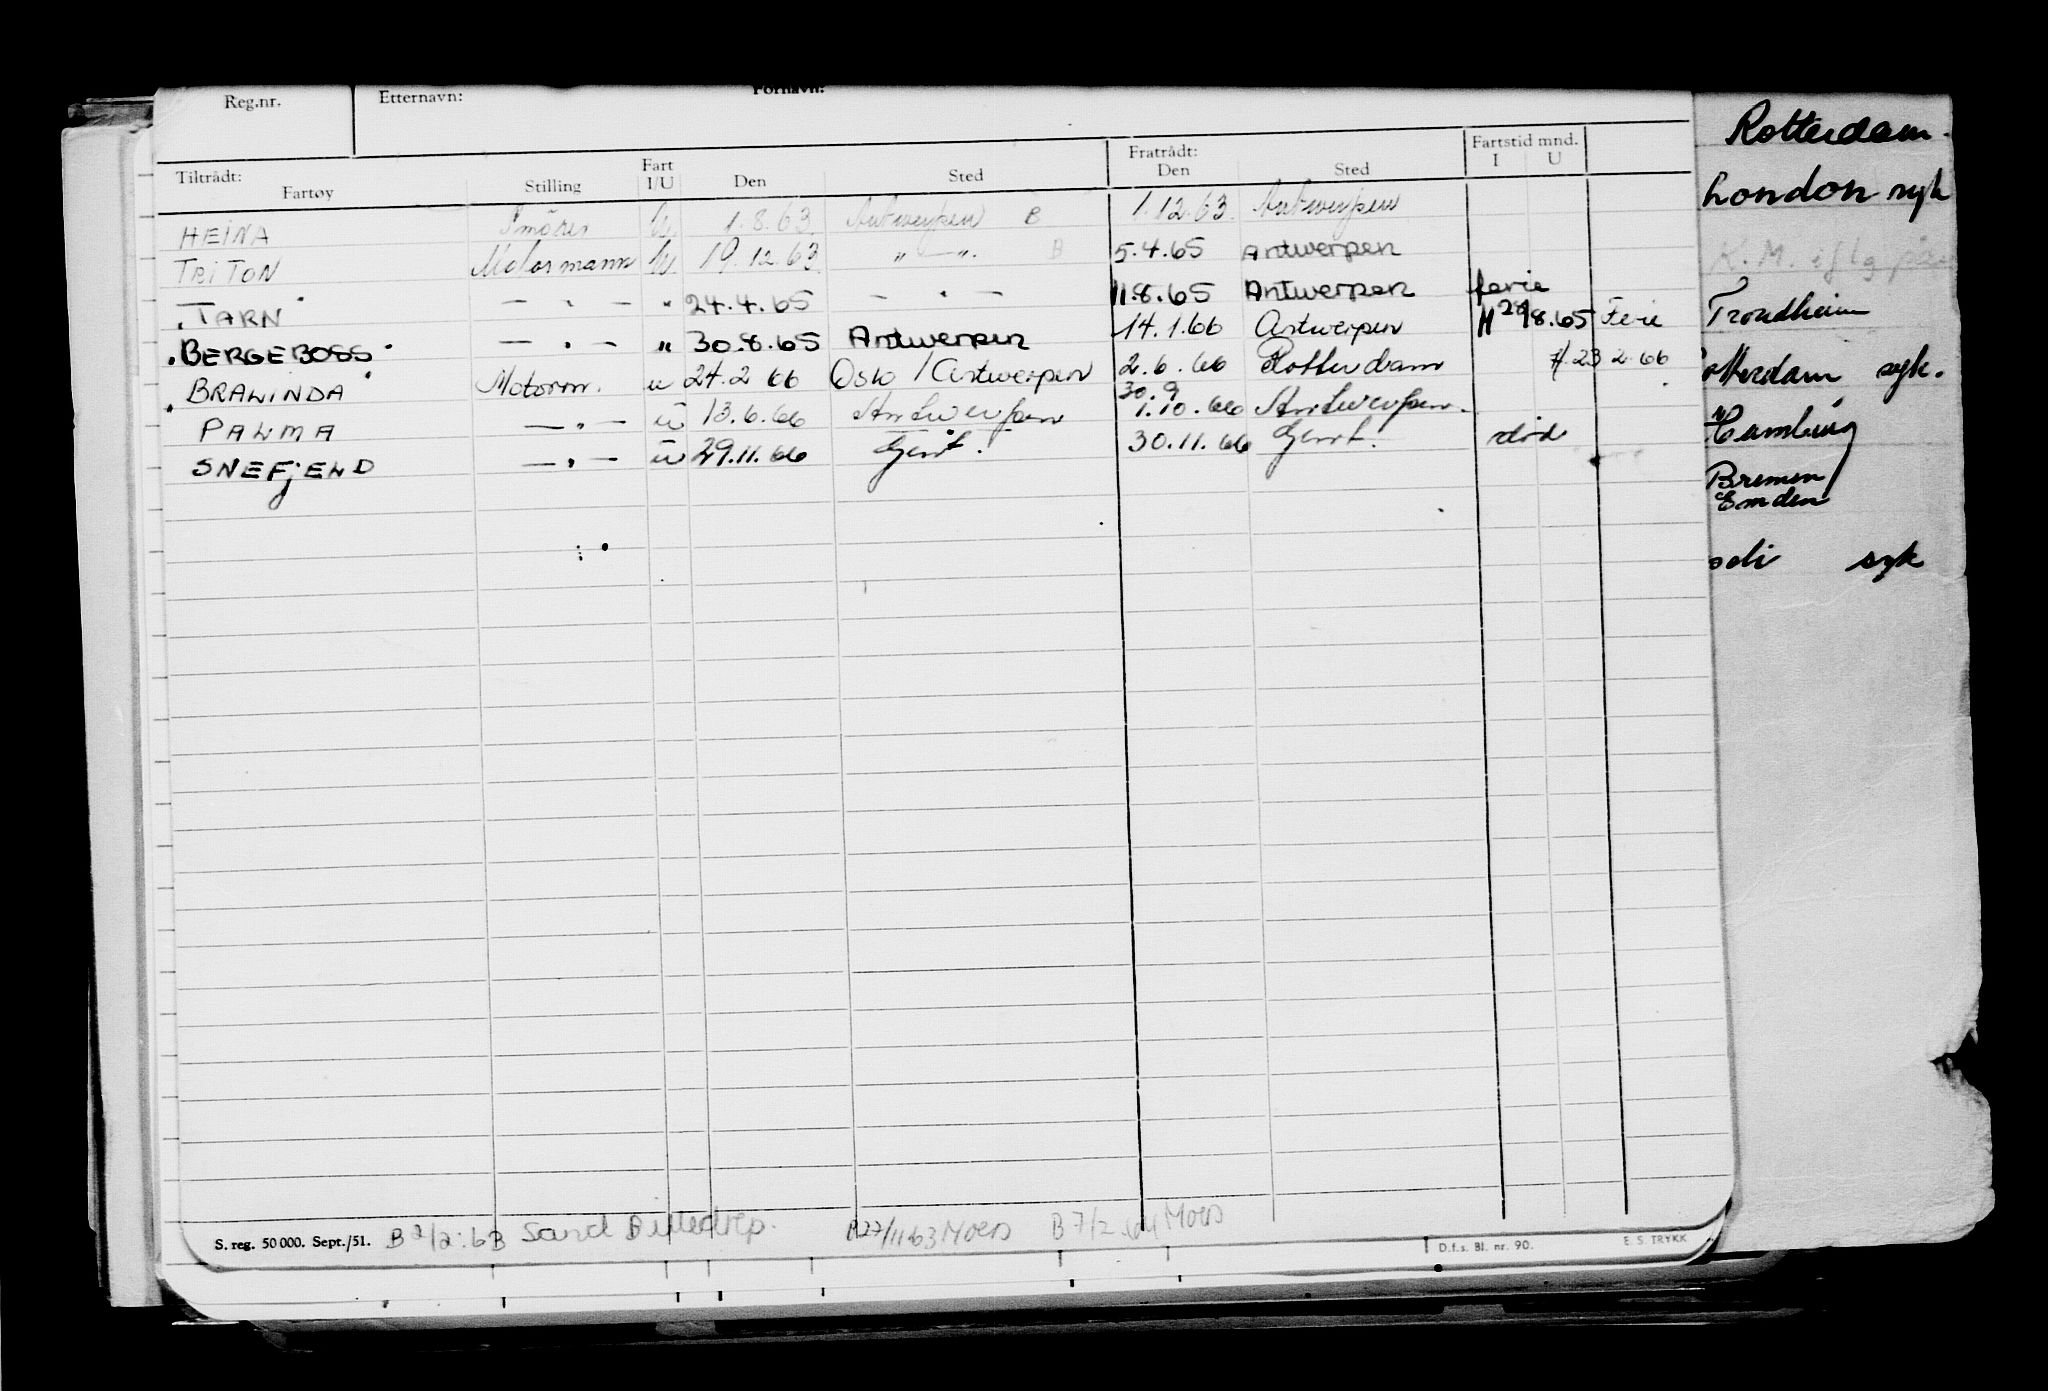 Reg.nr. Etternavn: Fornavn:
Tiltrådt: Fartøy Stilling Fart I/U Den Sted Fratrådt: Den Sted Fartstid mnd. I U
HEINA Smører U 1.8.63. Antwerpen B 1.12.63. Antwerpen
TRITON Motormann U. 19.12.63. " — ". B 5.4.65 Antwerpen
TARN — " — " 24.4.65 — " — 11.8.65 Antwerpen ferie
BERGEBOSS — " — " 30.8.65 Antwerpen 14.1.66 Antwerpen 8.65 Ferie
BRALINDA Motorm. u 24.2 66 Oslo / Antwerpen 2.6.66 Rotterdam 23 2.66
PALMA — " — u 13.6.66 Antwerpen 30.9 1.10.66 Antwerpen.
SNEFJELD — " — u 29.11.66 Gent. 30.11.66 Gent. død
Rotterdam.
London syk
K.M.
Trondheim
otterdam syk.
Hamburg
Bremen
Emden
syk
S. reg. 50 000. Sept./51. B 2/2.63 Sand B 27/11.63 Moen B 7/2.64 Moen D.f.s. Bl. nr. 90. E. S. TRYKK